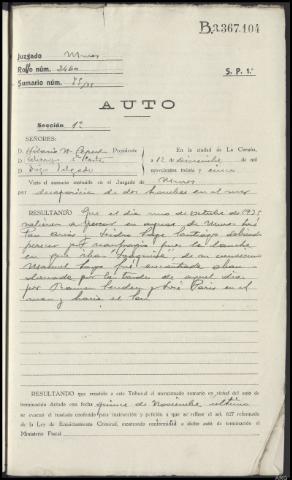 B.3.367.104
Juzgado Muros
Rollo núm. 2460
Sumario núm. 75/35
S. P. 1.ª
AUTO
Sección 1ª
SEÑORES:
D. Hilario Presidente
D.
D. Delgado
En la ciudad de La Coruña,
a 12 de diciembre de mil
novecientos treinta y cinco
Visto el sumario instruido en el Juzgado de Muros
por desaparición de dos hombres en el mar
RESULTANDO Que el día uno de Octubre de 1935
salieron a pescar en aguas de Muros José
y Isidro Lago Santiago debiendo
perecer por naufragio pues la lancha
en que iban de su convecino
Manuel Lago fué encontrada aban
donada por la tarde de aquel día
por Ramon y José Paris en el
mar y hacia el
RESULTANDO que remitido a este Tribunal el mencionado sumario en virtud del auto de
terminación dictado con fecha quince de Noviembre último
se evacuó el traslado conferido para instrucción y petición a que se refiere el art. 627 reformado
de la Ley de Enjuiciamiento Criminal, expresando conformidad a dicho auto de terminación el
Ministerio Fiscal